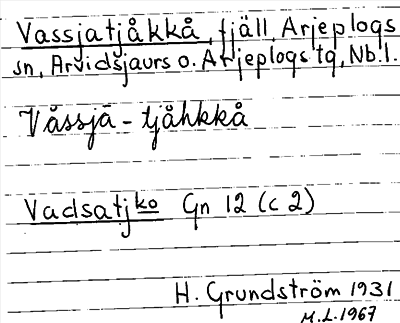 Vassjatjåkkå, fjäll, Arjeplogs
sn, Arvidsjaurs o. Arjeplogs tg, Nb. l.
Vássjā-tjåhkkå
Vadsatjko Gn 12 (c 2)
H. Grundström 1931
M.L. 1967